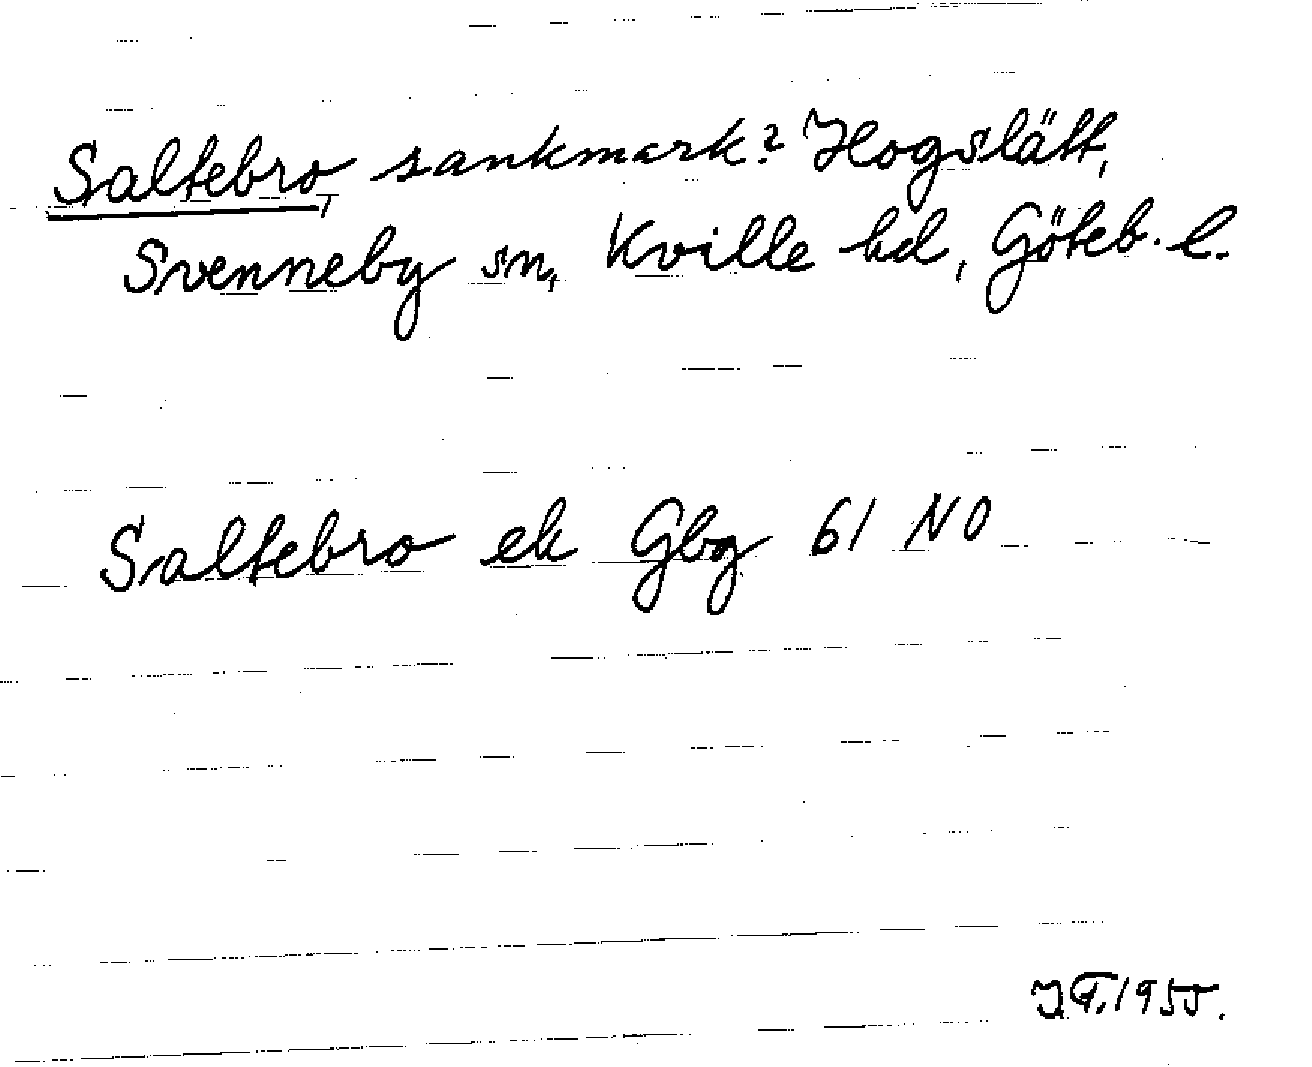 Saltebro, sankmark? Hogslätt,
Svenneby sn, Kville hd, Göteb. l.
Saltebro ek Gbg 61 NO
1955.